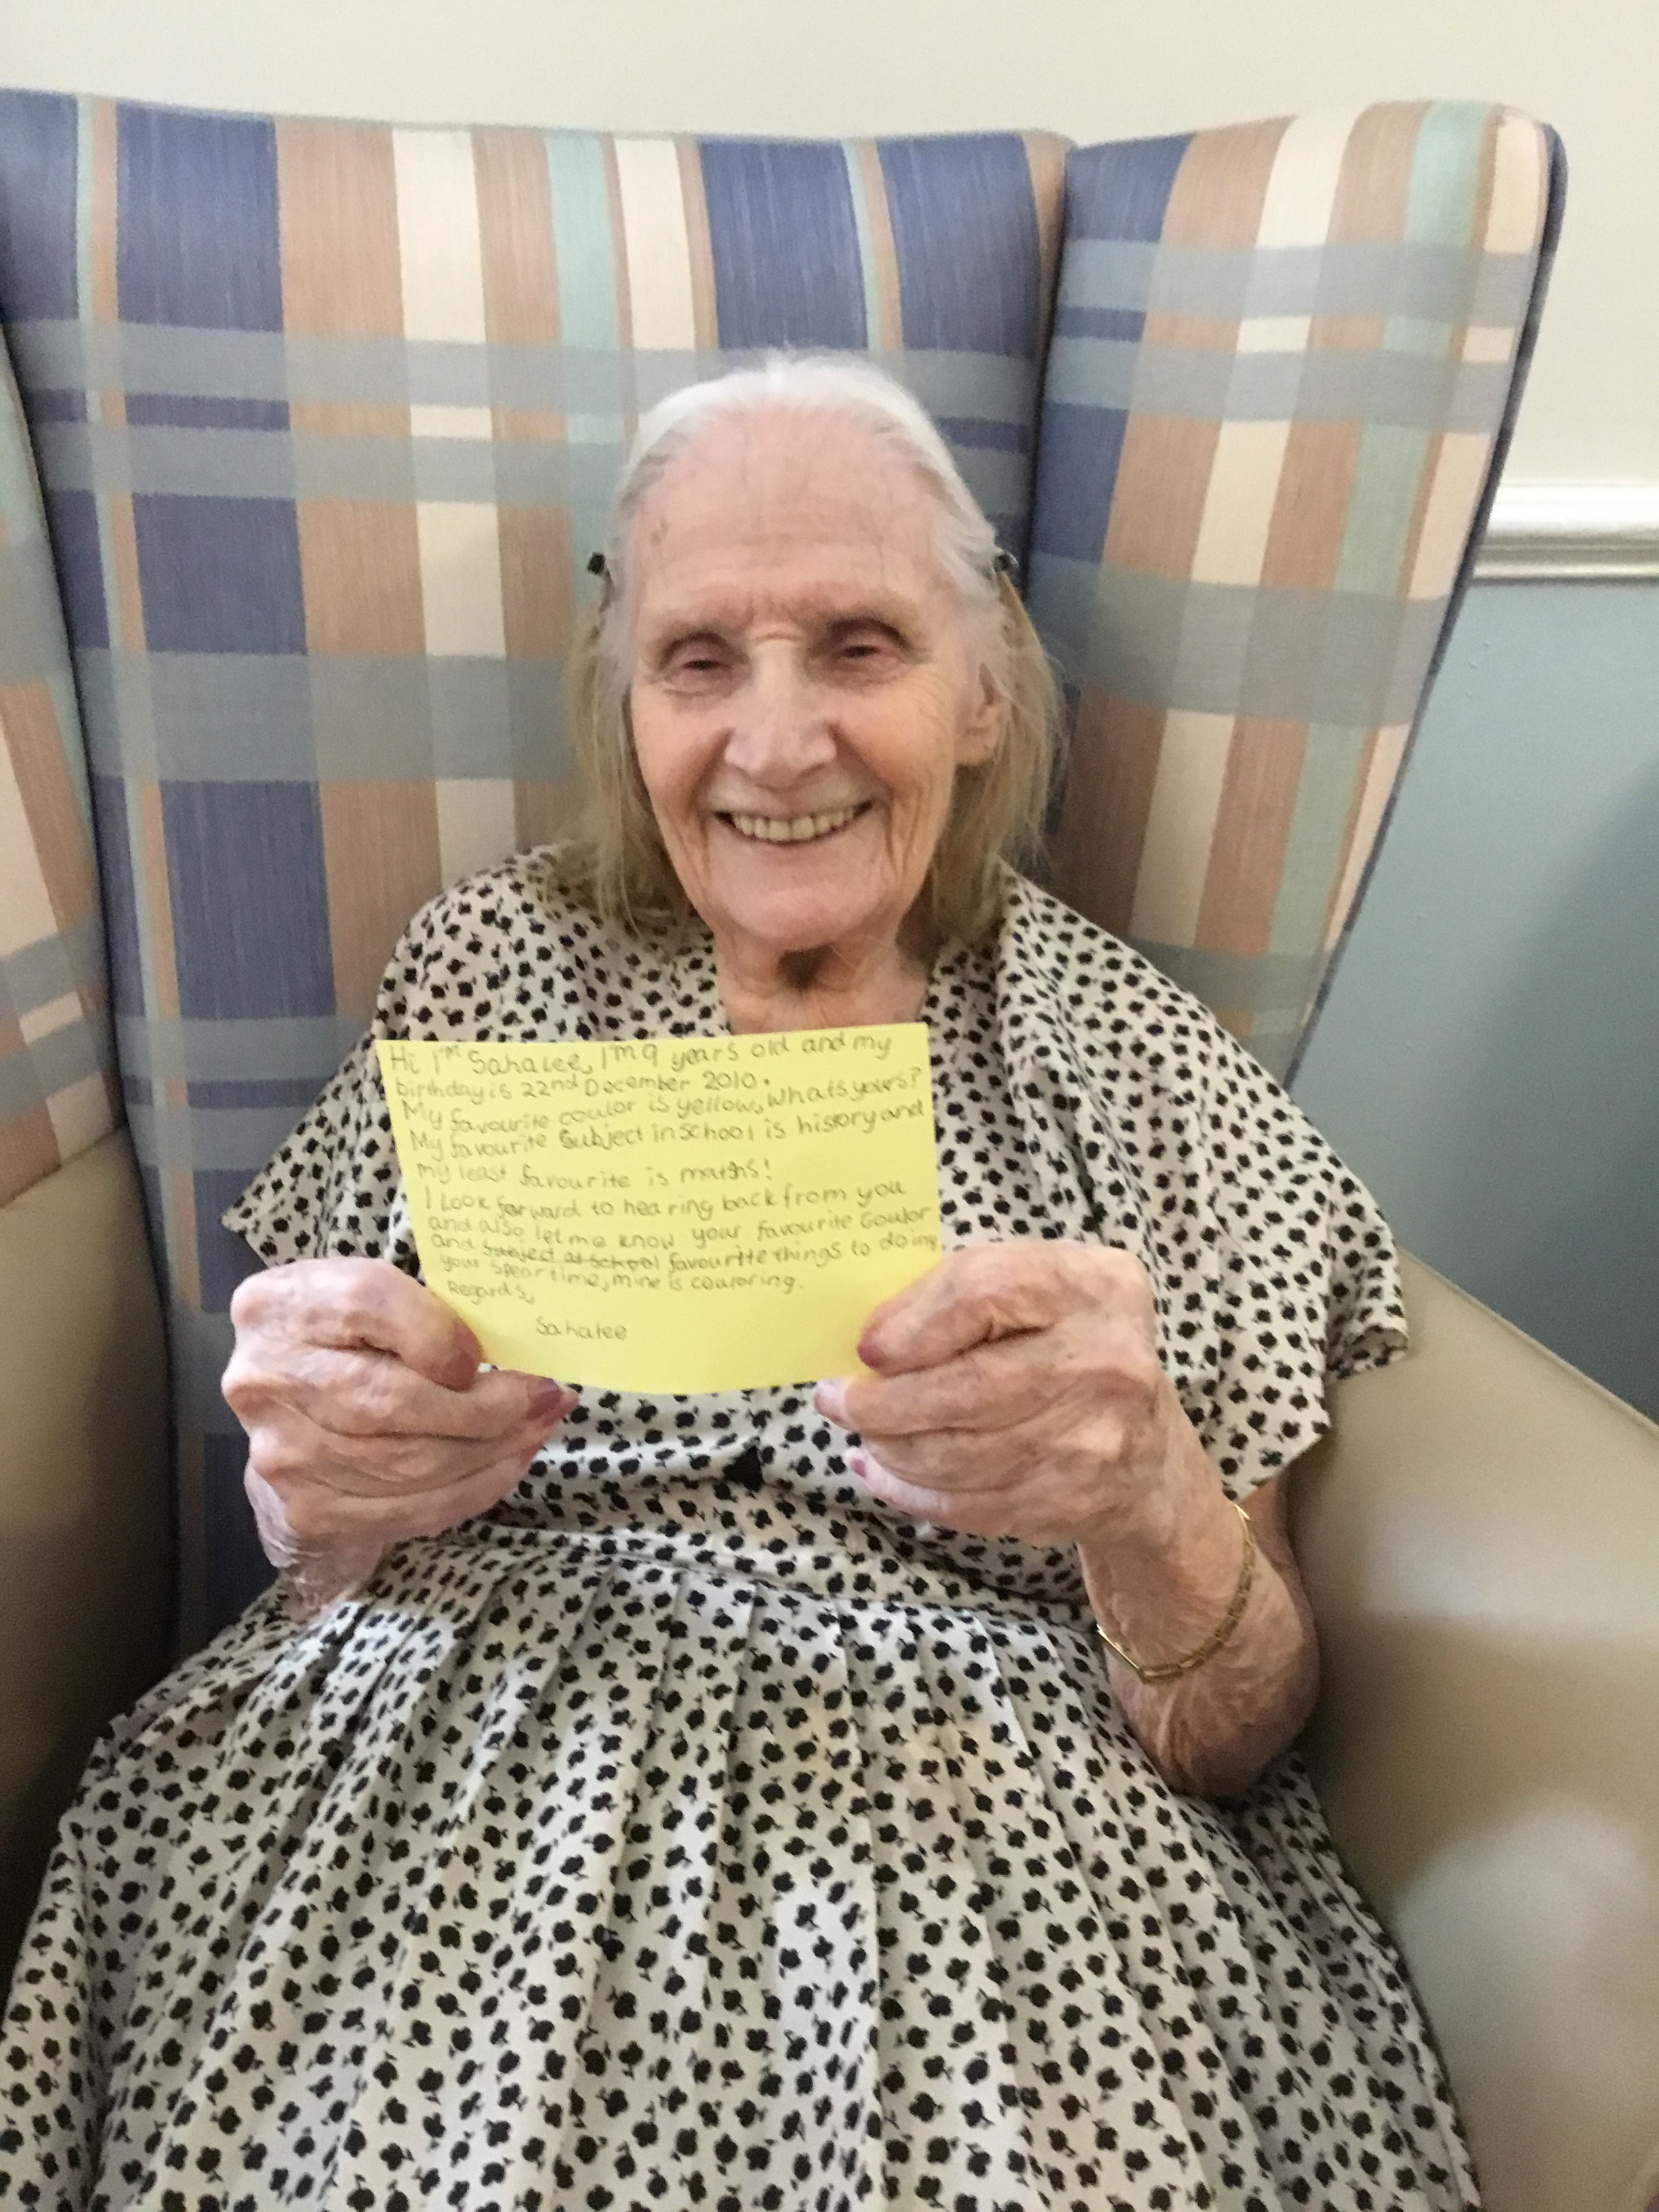 Hi I'm Sahalee, I'm 9 years old and my
birthday is 22nd December 2010.
My favourite coulor is yellow, whats yours?
My favourite Subject in School is history and
my least favourite is maths!
I Look forward to hearing back from you
and also let me know your favourite Coulor
and Subject at School favourite things to do ing
your Spear time, mine is couloring.
Regards,
Sahalee